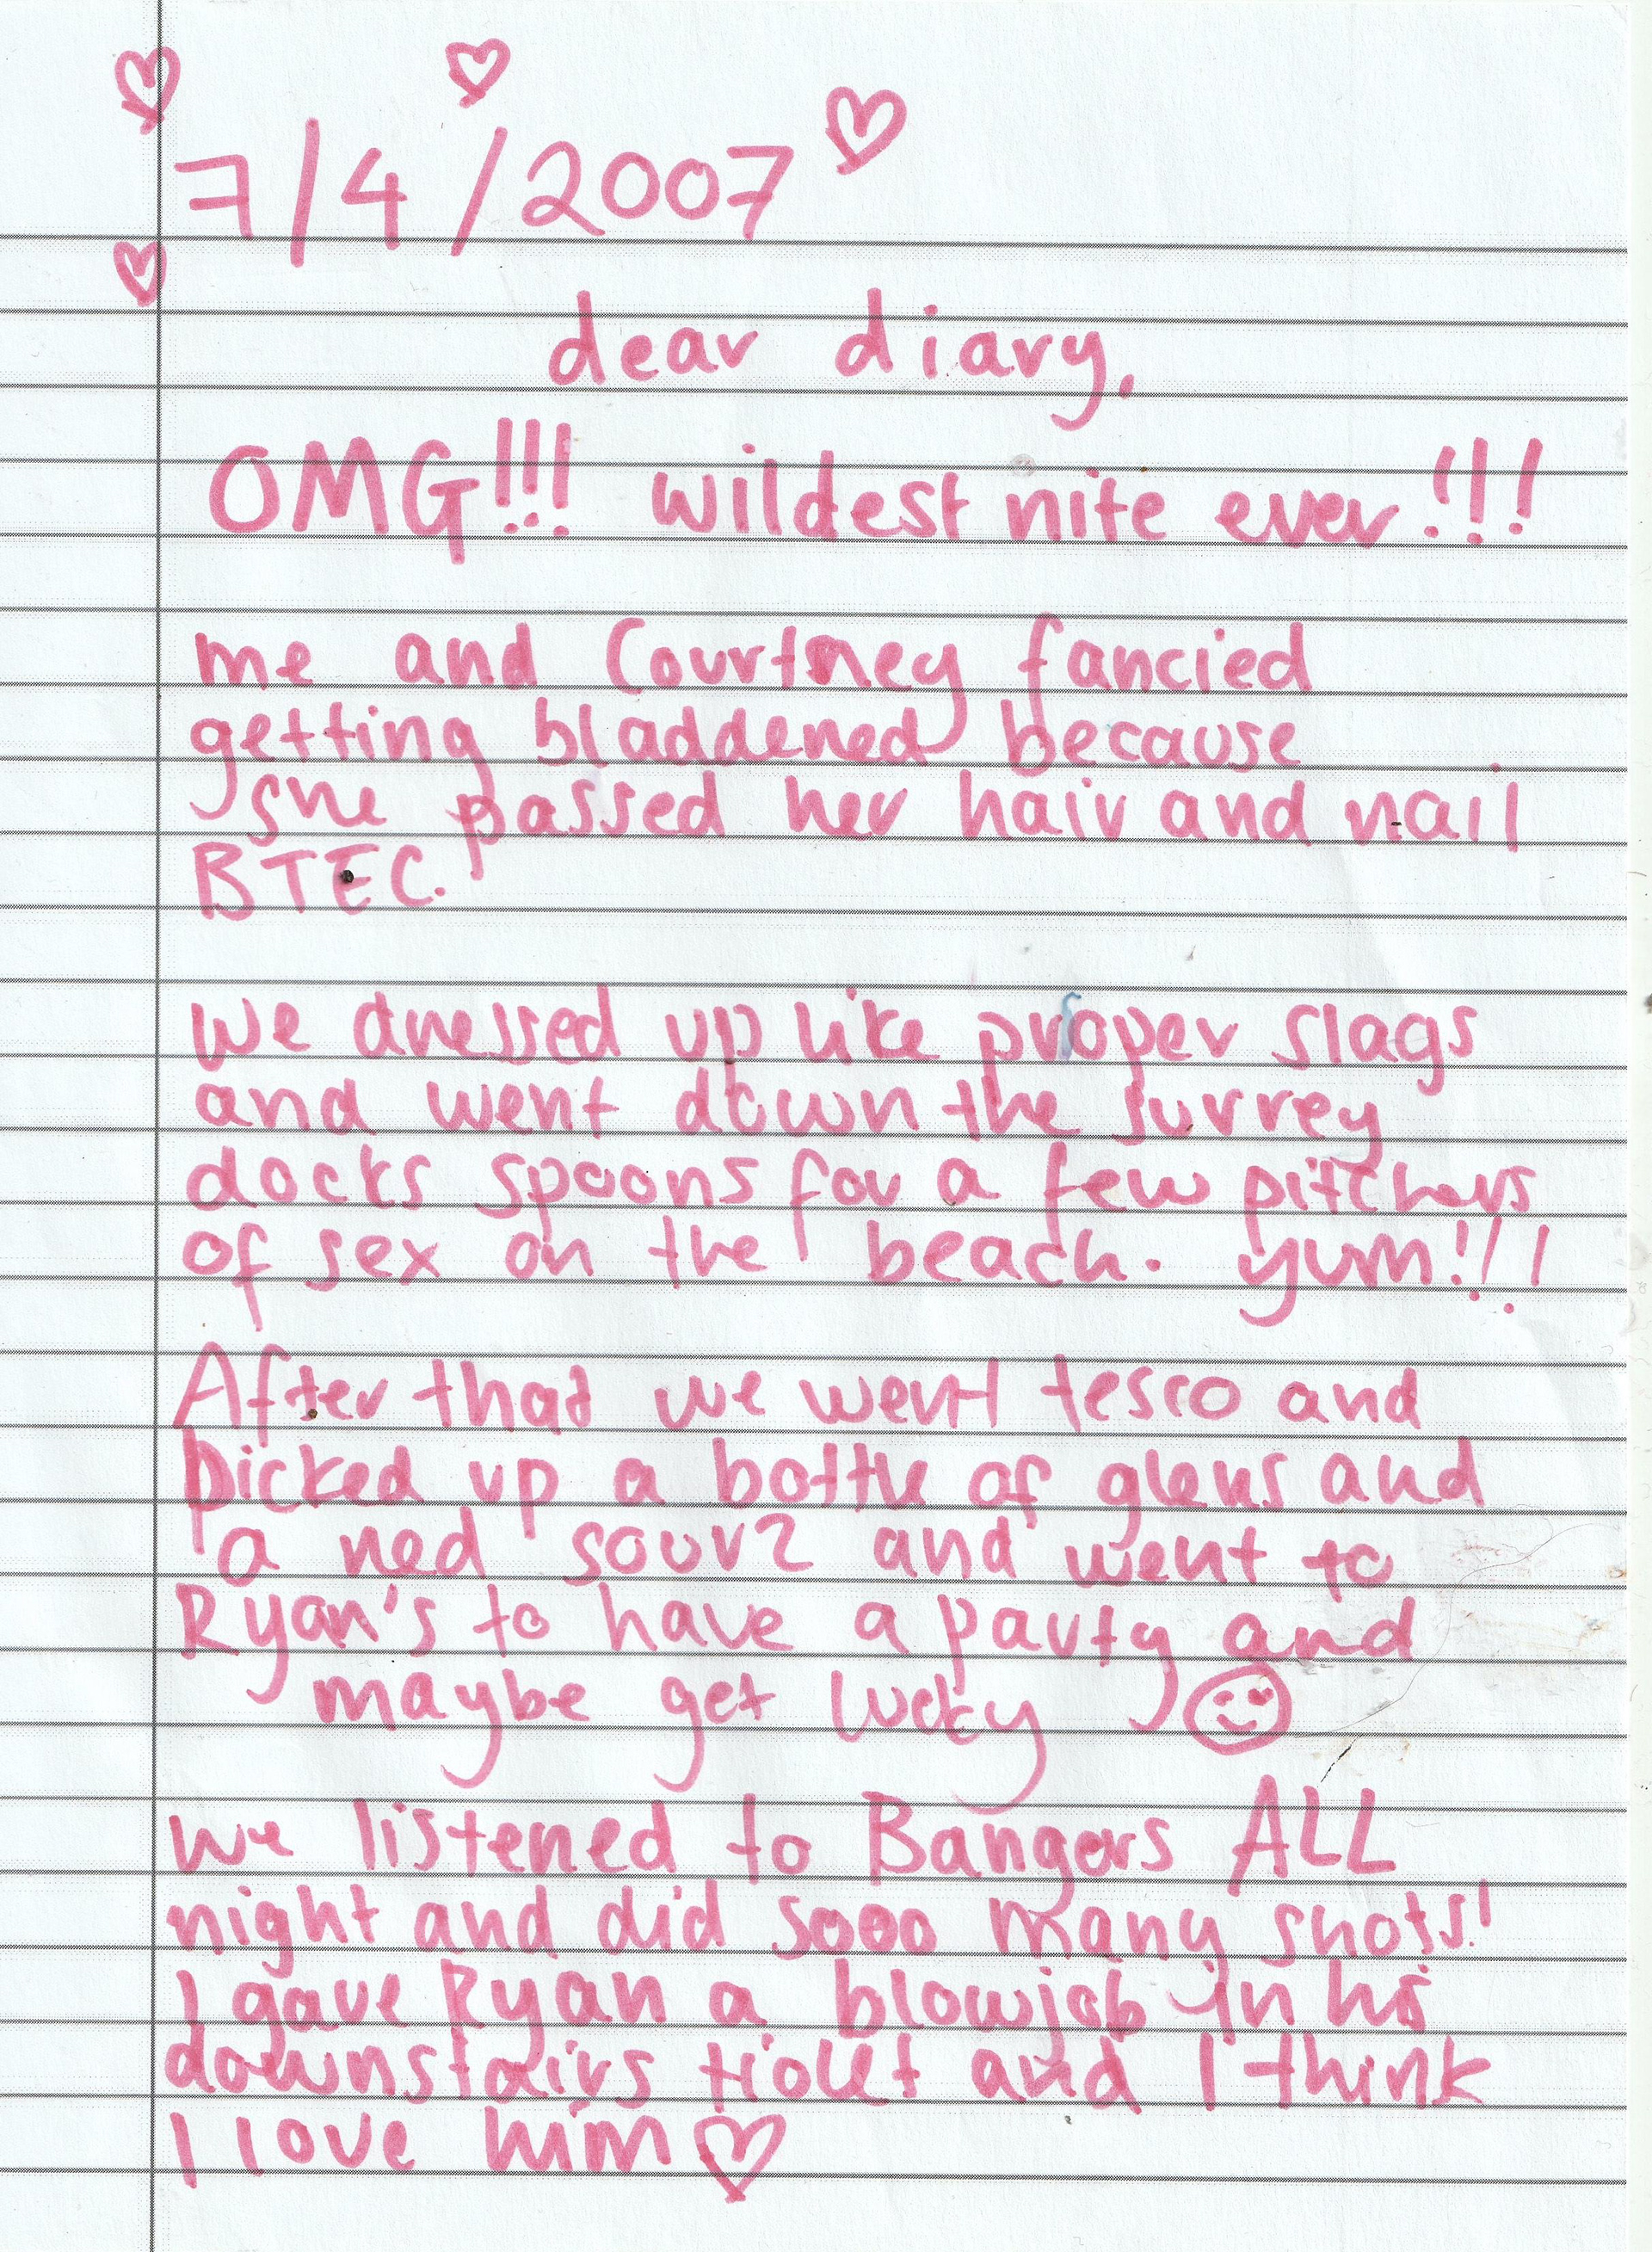 7/4/2007
dear diary,
OMG!!! wildest nite ever!!!
me and Courtney fancied
getting bladdened because
she passed her hair and nail
BTEC.
we dressed up like proper slags
and went down the surrey
docks spoons for a few pitchers
of sex on the beach. yum!!!
After that we went tesco and
picked up a bottle of glens and
a red sourz and went to
Ryan's to have a party and
maybe get lucky
we listened to Bangers ALL
night and did sooo many shots!
I gave Ryan a blowjob in his
downstairs tiolet and I think
I love him